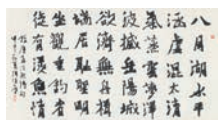 八月湖水平
涵虛混太清
氣蒸雲夢澤
波撼岳陽城
欲濟無舟楫
端居恥聖明
坐觀垂釣者
徒有羨魚情